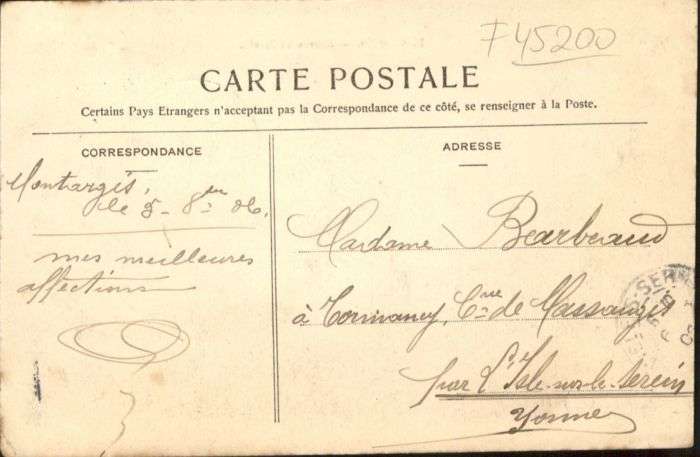 F45200
CARTE POSTALE
Certains Pays Etrangers n'acceptant pas la Correspondance de ce côté, se renseigner à la Poste.
CORRESPONDANCE
Montargis,
le 5 - 8bre 06.
mes meilleures
affections
ADRESSE
Madame Bearbeaud
à Tormancy, Cne de Massangis
par L'Isle-sur-le-Serein
Yonne